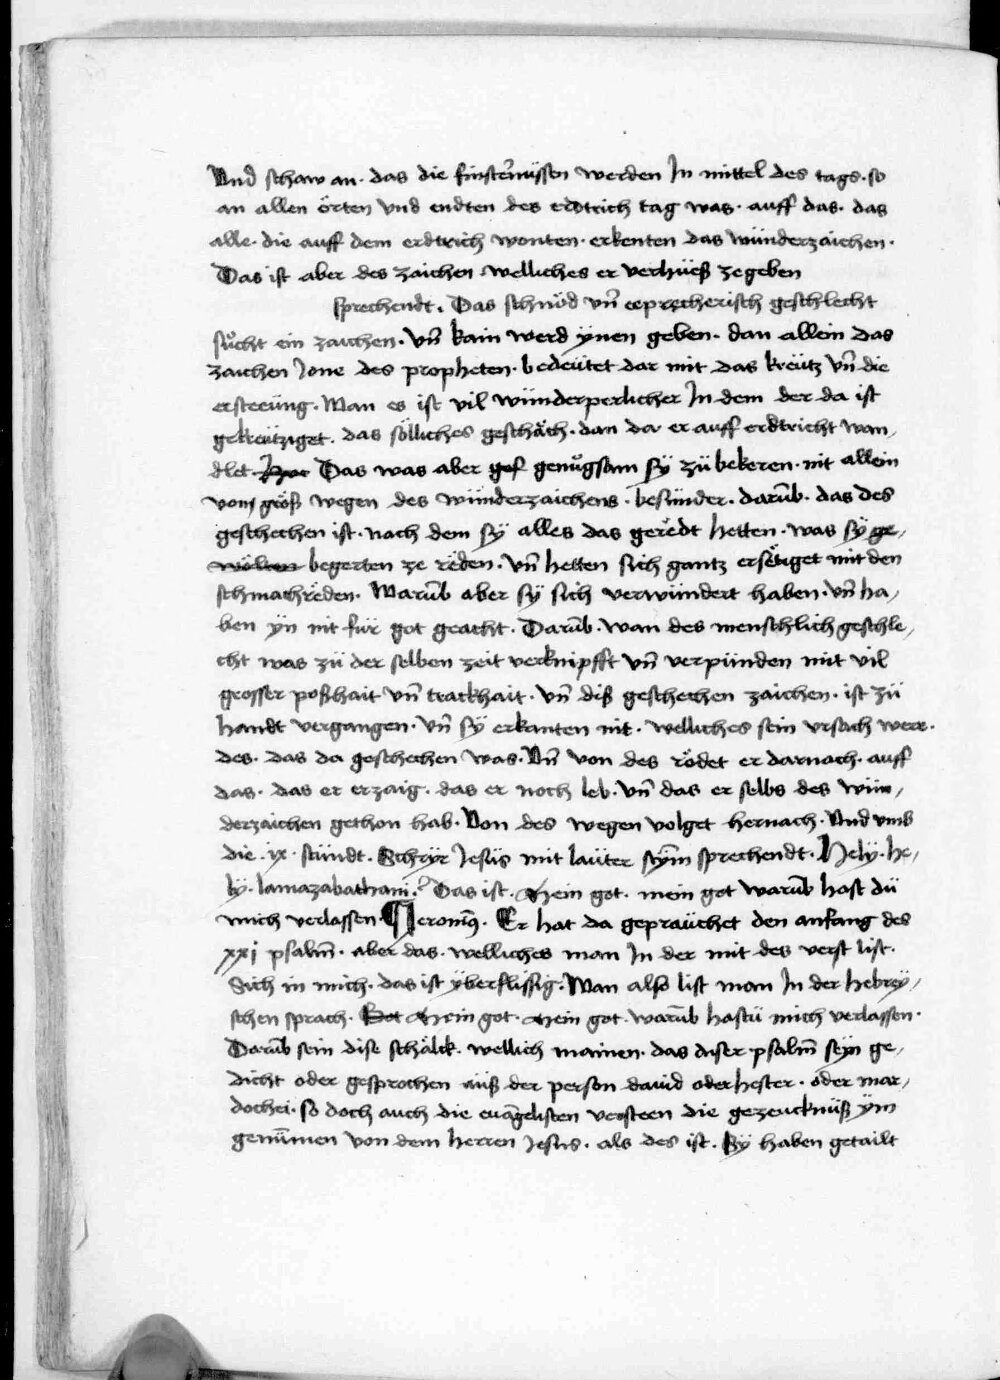 Vnd schaw an · das die finsternüssen werden Jn mittel des tags · so
an allen örten vnd endten des erdtrich tag was · auff das · das
alle · die auff dem erdtrich wonten · erkenten das wünderzaichen ·
Das ist aber des zaichen welliches er verhüeß ze geben
sprechendt . Das schnöd vn̄ eeprecherisch geschlecht
sůcht ein zaichen · vn̄ kain werd ÿnen geben · dan allein das
zaichen Jone des propheten · bedeütet dar mit das kreütz vn̄ die
ersteeüng · Wan es ist vil wünderperlicher Jn dem der da ist
gekreütziget · das sölliches geschäch · dan da er auff erdtricht wan¬
dlet · Das was aber genůgsam sÿ zü bekeren · nit allein
von größ wegen des wünderzaichens · besünder · darūb · das des
geschechen ist · nach dem sÿ alles das gerëdt hetten · was sÿ
begerten ze rëden · vn̄ hetten sich gantz ersëtiget mit den
schmachrëden · Warūb aber sÿ sich verwündert haben · vn̄ ha¬
ben ÿn nit für got geacht · Darūb · wan des menschlich geschle¬
cht was zü der selben zeit verknipfft vn̄ verpünden mit vil
grosser poßhait vn̄ trackhait · vn̄ diß geschechen zaichen · ist zü
handt vergangen · vn̄ sÿ erkanten nit · welliches sein vrsach were ·
des · das da geschechen was · Vn̄ von des rödet er darnach · auff
das · das er erzaig · das er noch leb · vn̄ das er selbs des wün¬
derzaichen gethon hab · Von des wegen volget hernach · Vnd vmb
die · ix · stündt · Schrÿr Jesüs mit laüter stÿm̄ sprechendt · Helÿ · he¬
lÿ · lamazabathani · Das ist · Mein got · mein got warūb hast dü
mich verlassen · Jeronim9 · Er hat da gepraüchet den anfang des
xxj psalm̄ · aber das · welliches man Jn der mit des verst list ·
Sich in mich · das ist ÿberflissig · Wan also list man Jn der hebreÿ¬
schen sprach · Mein got · Mein got · warūb hastü mich verlassen ·
Darūb sein dise schälck · wellich mainen · das diser psalm̄ seÿn ge¬
dicht oder gesprochen aüß der person david oder hester · oder mar¬
dochei · so doch auch die evāgelisten versteen die gezeucknüß ÿm
genūmen von dem herren Jesüs · als des ist · Sÿ haben getailt